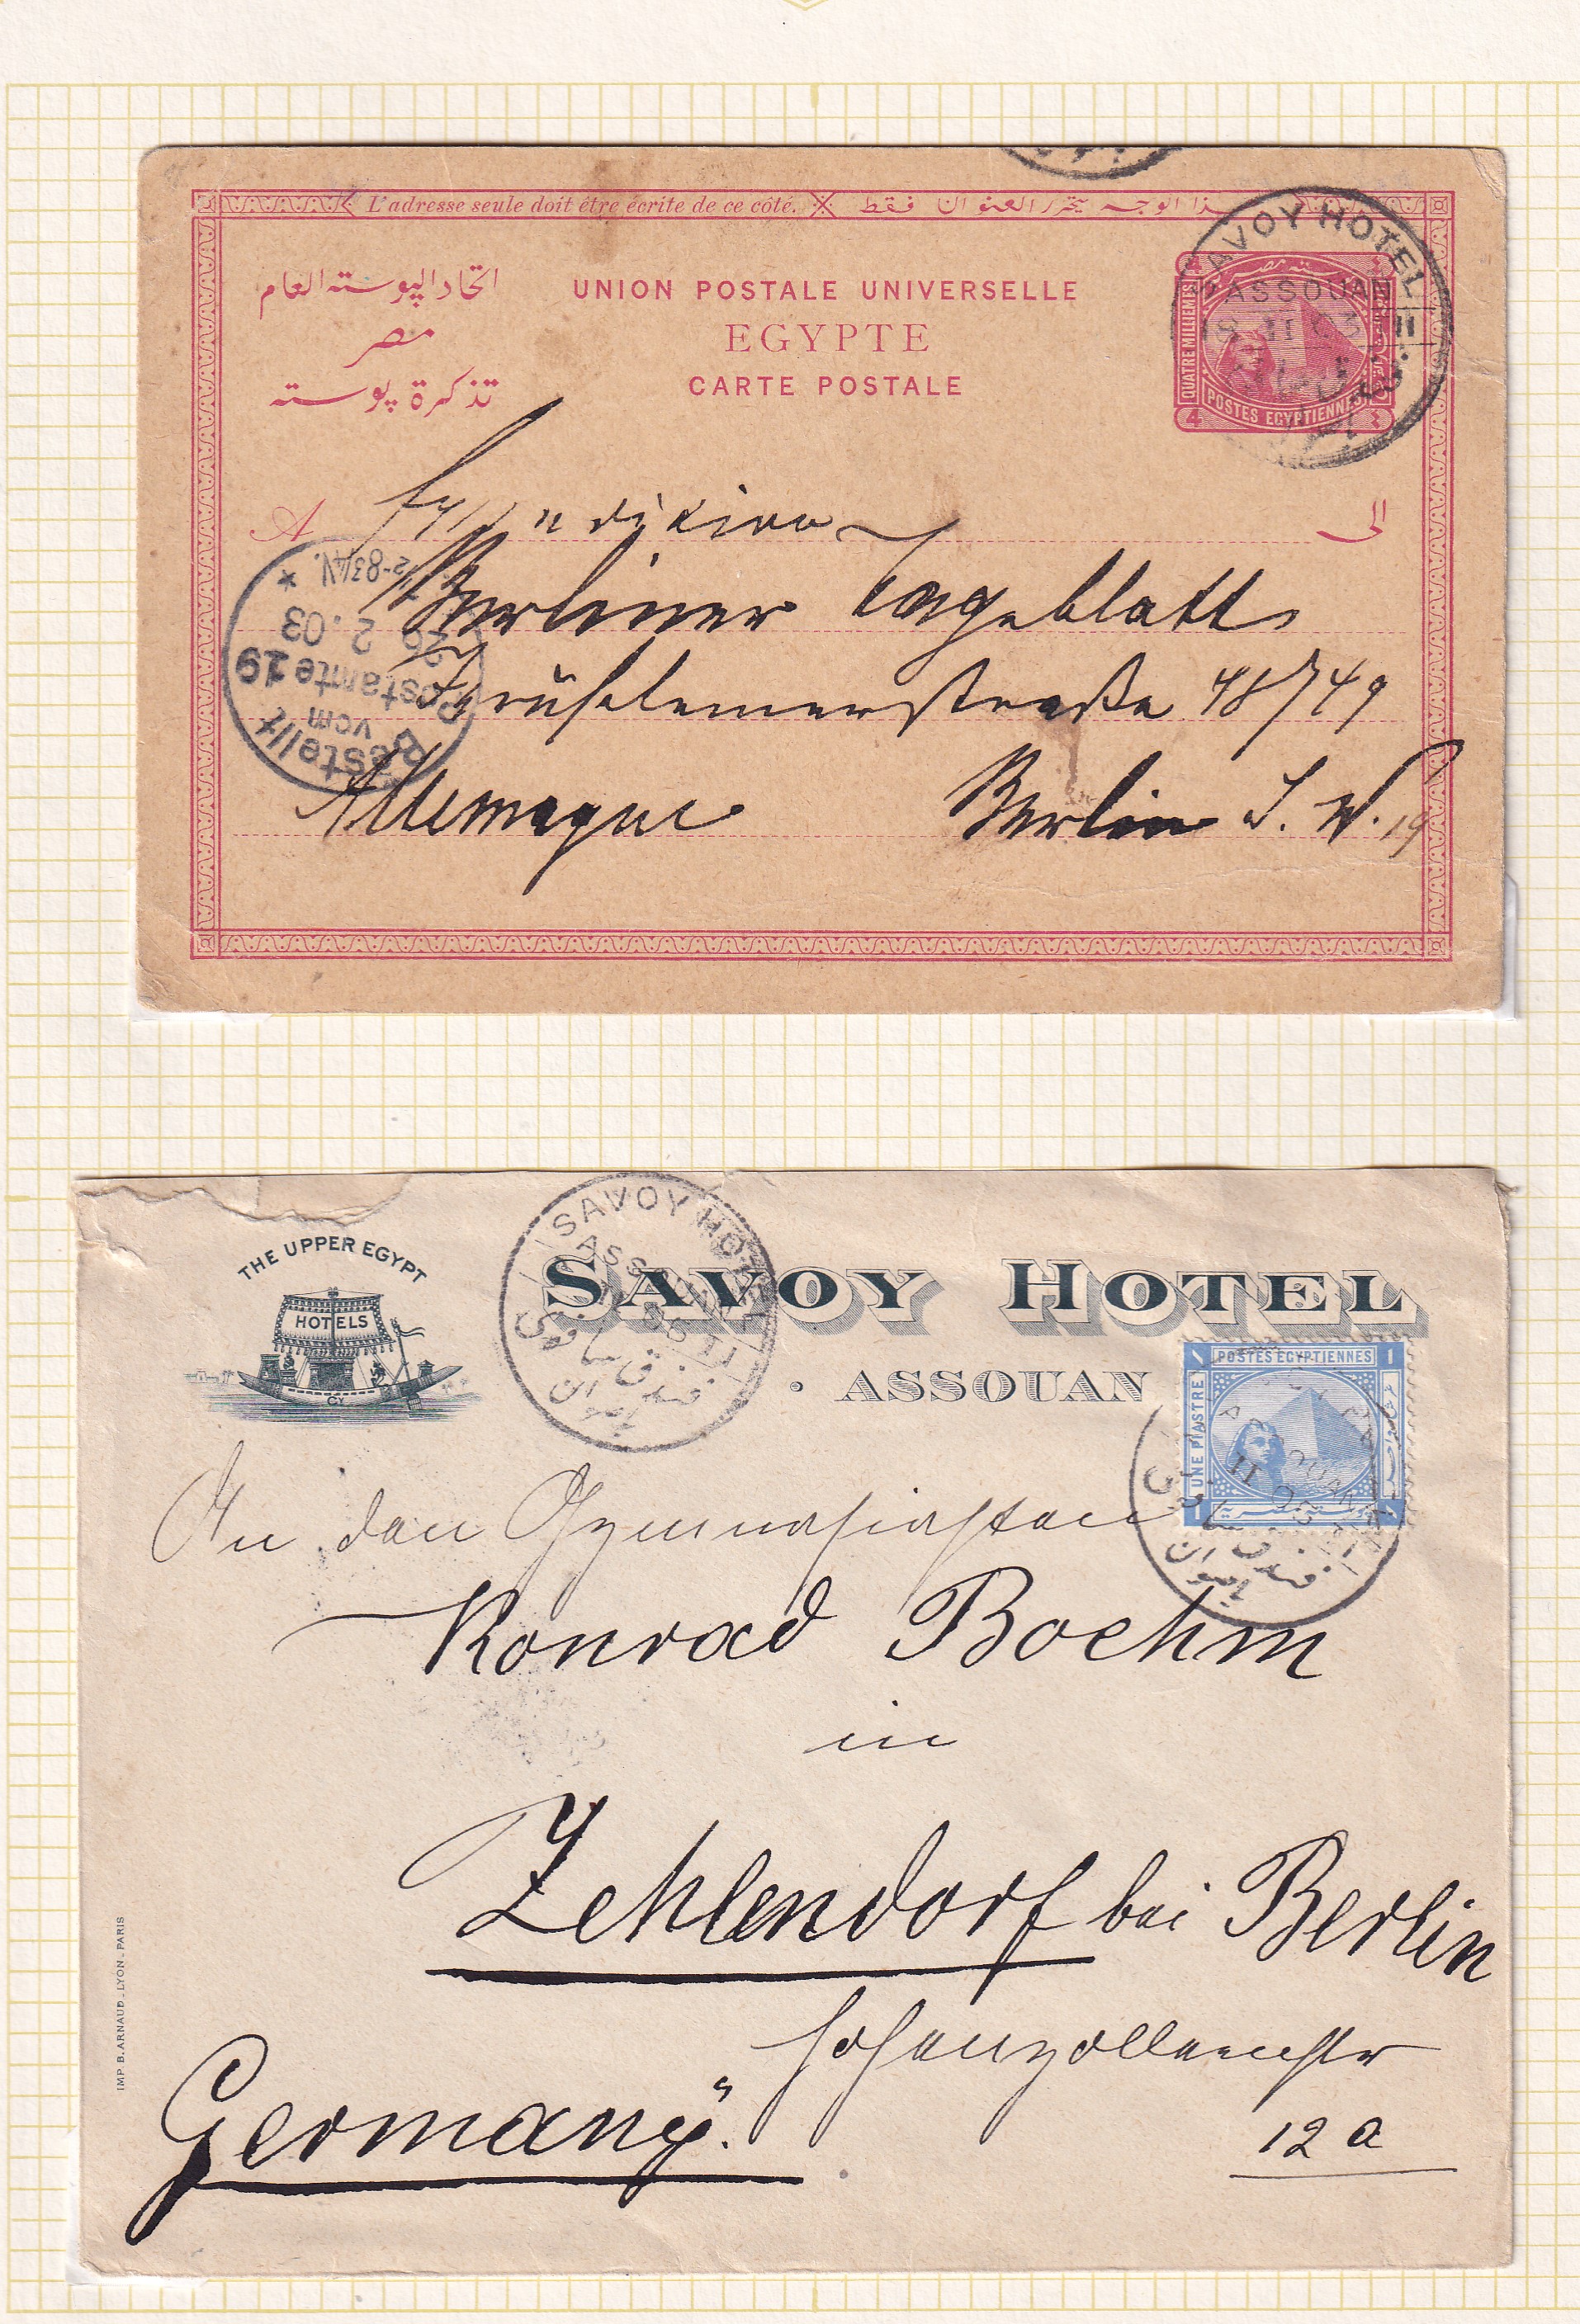 L'adresse seule doit être écrite de ce côté.
هذا الوجه يحرر العنوان فقط
اتحاد البوسته العام
مصر
تذكرة بوسته
UNION POSTALE UNIVERSELLE
EGYPTE
CARTE POSTALE
SAVOY HOTEL
ASSOUAN
II 03
QUATRE MILLIEMES
POSTES EGYPTIENNES
4 ٤
A
الى
Berliner Tageblatt
Jerusalemerstraße 48/49
Allemagne
Berlin S. W. 19
Bestellt
vom
Postamte 19
26 2. 03
THE UPPER EGYPT
HOTELS
CY
SAVOY HOTEL
ASSOUAN
SAVOY HOTEL
فندق سافوي
باصوان
POSTES EGYPTIENNES
UNE PIASTRE
1
فندق سافوي
باصوان
An den Gymnasiasten
Konrad Boehm
in
Zehlendorf bei Berlin
Hohenzollernstr
12 a
Germany.
IMP. B. ARNAUD _ LYON _ PARIS